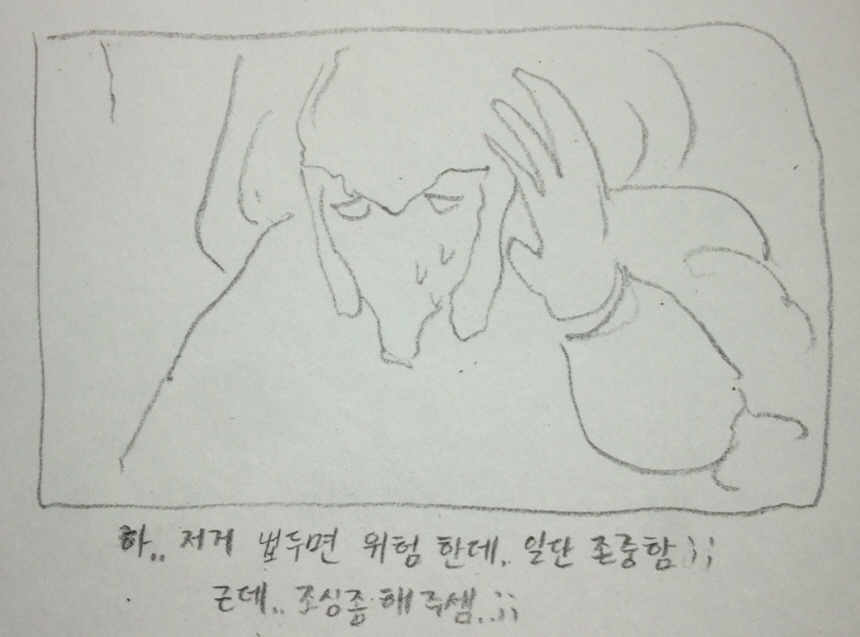 하.. 저게 놔두면 위험 한데.. 일단 존중함;;
근데.. 조심좀 해주셈..;;